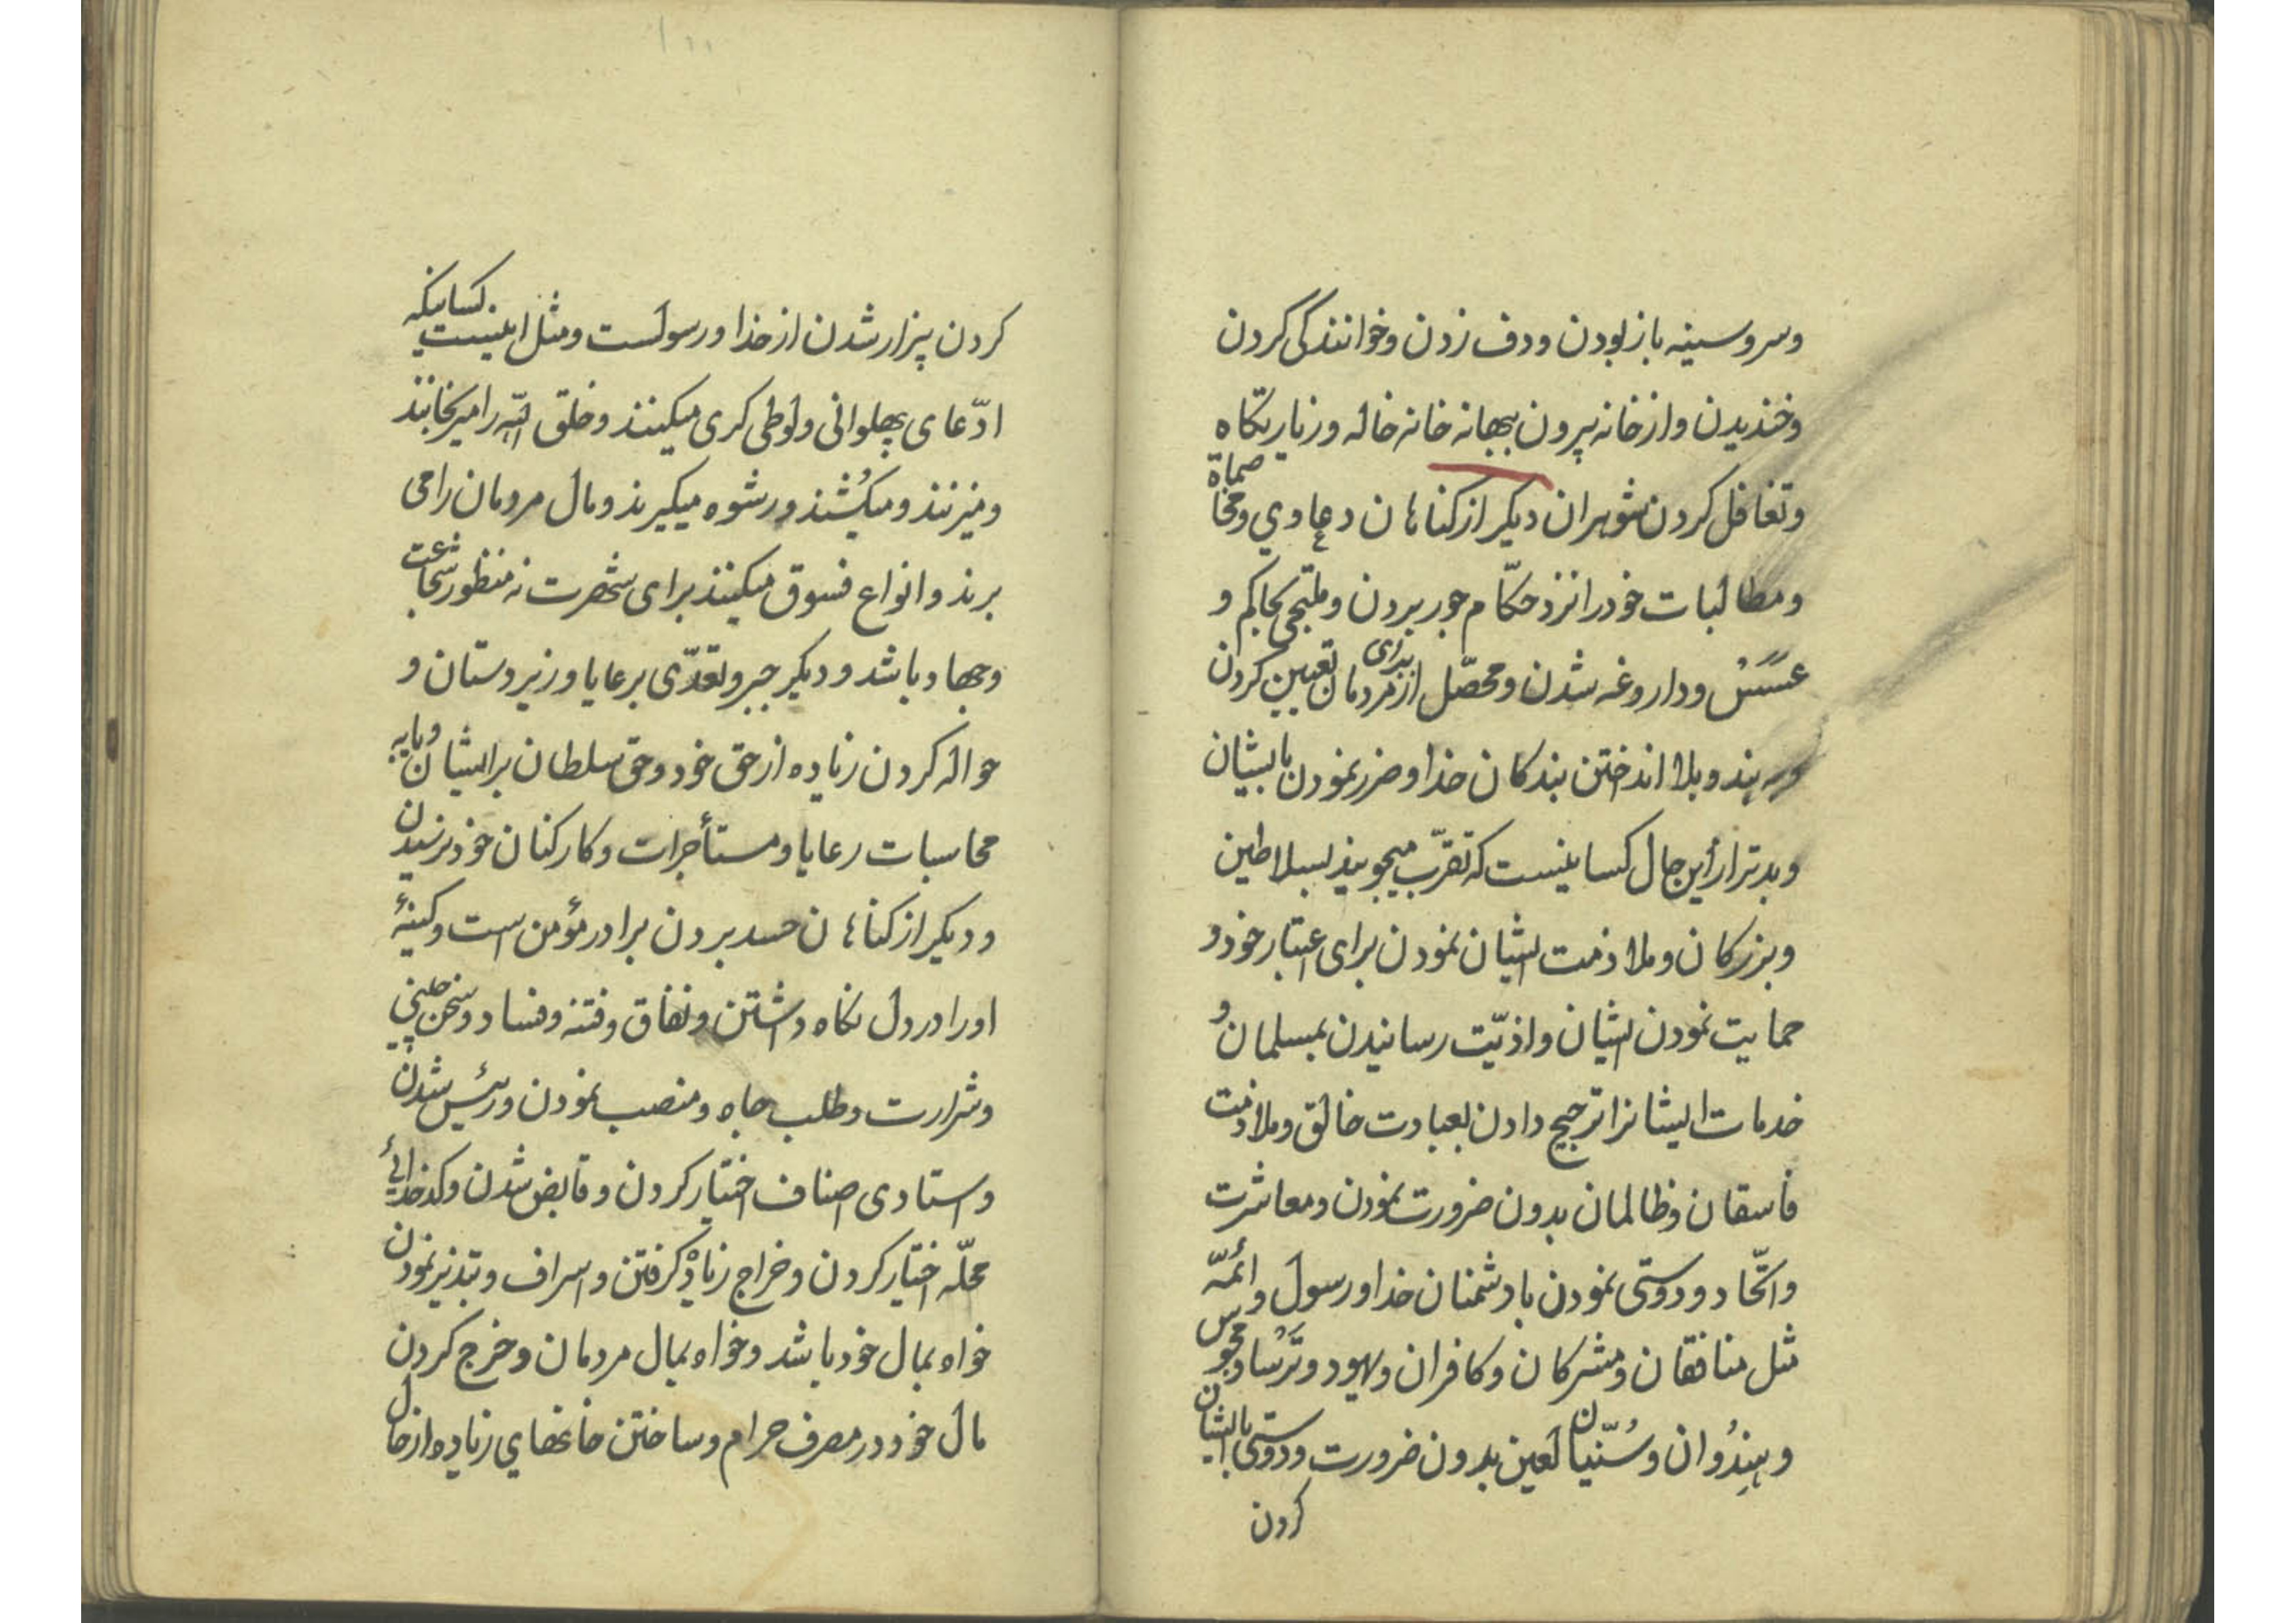 وسروسینه باز بودن ودف زدن وخوانندگی کردن
وخندیدن واز خانه بیرون ببهانه خانه خاله وزیارتگاه
وتغافل کردن شوهران دیگر از کناهان دعاوي ومخاصماة
ومطالبات خود را نزد حکّام جور بردن وملتجی بحاکم و
عسس وداروغه شدن ومحصّل برای از مردمان تعیین کردن
وبه بند وبلا انداختن بندکان خدا وضرر نمودن بایشان
وبدتر از این حال کسانیست که تقرّب میجویند بسلاطین
وبزرکان وملازمت ایشان نمودن برای اعتبار خود و
حمایت نمودن ایشان واذیّت رسانیدن بمسلمان و
خدمات ایشانرا ترجیح دادن بعبادت خالق وملازمت
فاسقان وظالمان بدون ضرورت نمودن ومعاشرت
واتّحاد ودوستی نمودن با دشمنان خدا ورسول وائمّه
مثل منافقان ومشرکان وکافران ویهود وترسا ومجوس
وهندُوان وسُنّیان لعین بدون ضرورت ودوستی با ایشان
کردن
کردن بیزار شدن از خدا ورسولست ومثل اینست کسانیکه
ادّعای پهلوانی ولوطی کری میکنند وخلق الله را میرنجانند
ومیزنند ومیکُشند ورشوه میکیرند ومال مردمان را می
برند وانواع فسوق میکنند برای شهرت نه منظور شجاعت
وجهاد باشد ودیکر جبر وتعدّی برعایا وزیردستان و
حواله کردن زیاده از حق خود وحق سلطان بر ایشان وبایه
محاسبات رعایا ومستأجرات وکارکنان خود نرسیدن
ودیکر از کناهان حسد بردن برادر مؤمن است وکینهٔ
او را در دل نکاه داشتن ونفاق وفتنه وفساد وسخن چینی
وشرارت وطلب جاه ومنصب نمودن ورئیس شدن
واستادی اصناف اختیار کردن وقابض شدن وکدخدائی
محلّه اختیار کردن وخراج زیاده کرفتن واسراف وتبذیر نمودن
خواه بمال خود باشد وخواه بمال مردمان وخرج کردن
مال خود در مصرف حرام وساختن خانهاي زیاده از حال